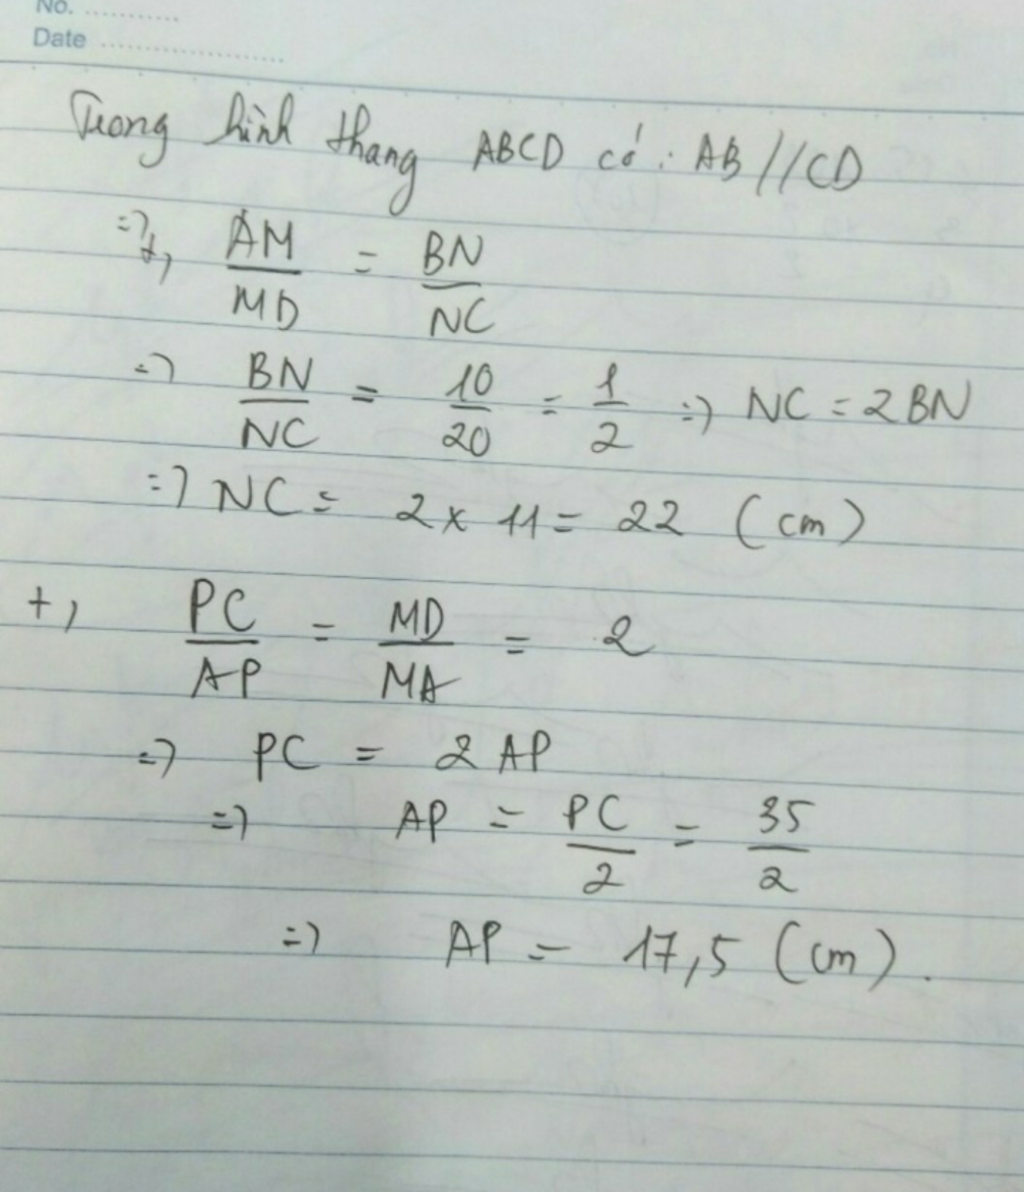 No. ............
Date ........................
Trong hình thang ABCD có: AB//CD
=> +, AM/MD = BN/NC
=> BN/NC = 10/20 = 1/2 => NC = 2BN
=> NC = 2 x 11 = 22 (cm)
+, PC/AP = MD/MA = 2
=> PC = 2 AP
=> AP = PC/2 = 35/2
=> AP = 17,5 (cm).